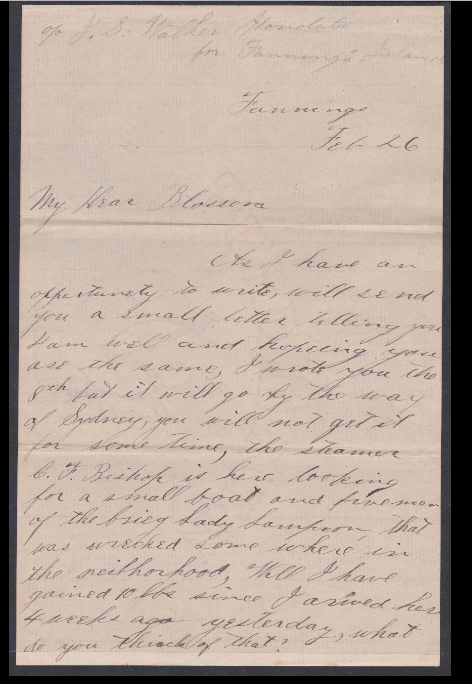 c/o J. S. Walker Honolulu
for Fannings Island
Fannings
Feb 26
My Dear Blossom
As I have an
oppertunety to write, will send
you a small letter telling you
I am well and hopeing you
are the same, I wrote you the
8th but it will go by the way
of Sydney, you will not get it
for some time, the steamer
C. F. Bishop is here looking
for a small boat and five men
of the brieg Lady Lampson, that
was wrecked some where in
the neithorhood, Well I have
gained 10 lbs since I arived here
4 weeks ago yesterday, what
do you think of that?